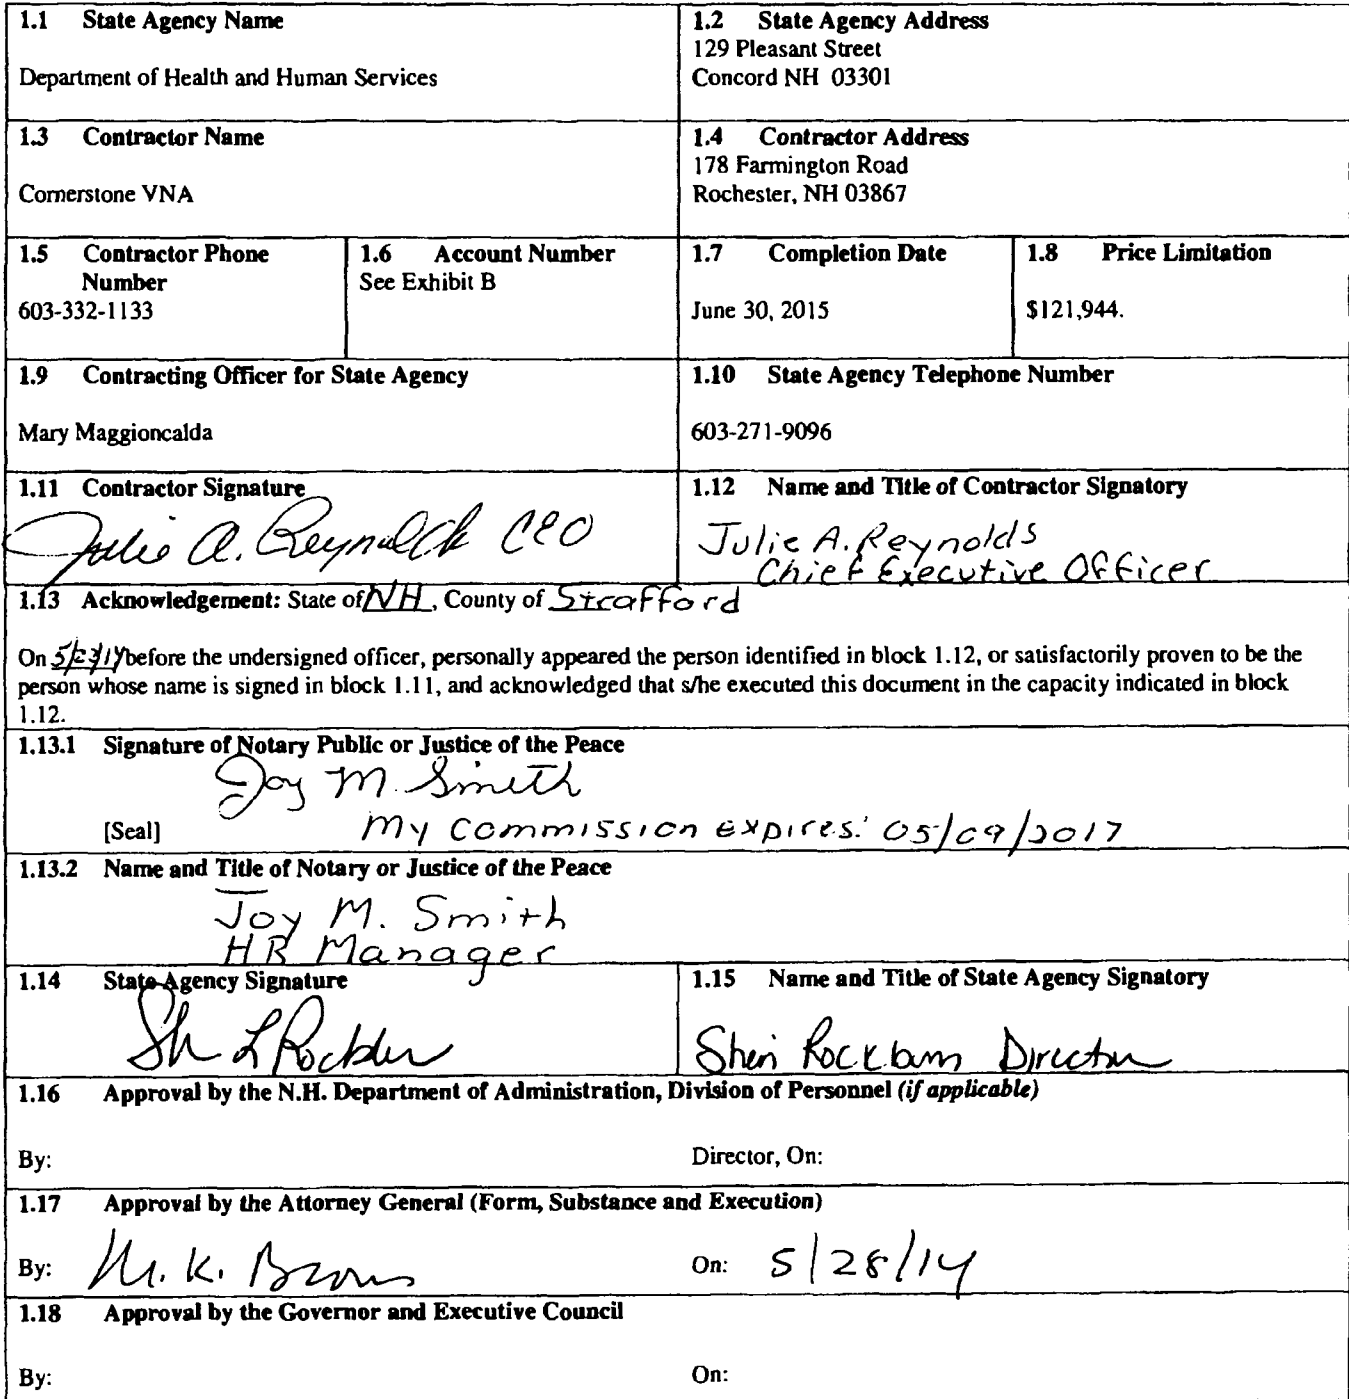 1.1 State Agency Name
Department of Health and Human Services
1.2 State Agency Address
129 Pleasant Street
Concord NH 03301
1.3 Contractor Name
Cornerstone VNA
1.4 Contractor Address
178 Farmington Road
Rochester, NH 03867
1.5 Contractor Phone
Number
603-332-1133
1.6 Account Number
See Exhibit B
1.7 Completion Date
June 30, 2015
1.8 Price Limitation
$121,944.
1.9 Contracting Officer for State Agency
Mary Maggioncalda
1.10 State Agency Telephone Number
603-271-9096
1.11 Contractor Signature
Julie A. Reynolds CEO
1.12 Name and Title of Contractor Signatory
Julie A. Reynolds
Chief Executive Officer
1.13 Acknowledgement: State of NH, County of Strafford
On before the undersigned officer, personally appeared the person identified in block 1.12, or satisfactorily proven to be the
person whose name is signed in block 1.11, and acknowledged that s/he executed this document in the capacity indicated in block
1.12.
1.13.1 Signature of Notary Public or Justice of the Peace
Joy M. Smith
[Seal] My Commission expires: 05/09/2017
1.13.2 Name and Title of Notary or Justice of the Peace
Joy M. Smith
HR Manager
1.14 State Agency Signature
1.15 Name and Title of State Agency Signatory
Sheri Rockburn Director
1.16 Approval by the N.H. Department of Administration, Division of Personnel (if applicable)
By: Director, On:
1.17 Approval by the Attorney General (Form, Substance and Execution)
By: M.K. Brown On: 5/28/14
1.18 Approval by the Governor and Executive Council
By: On: